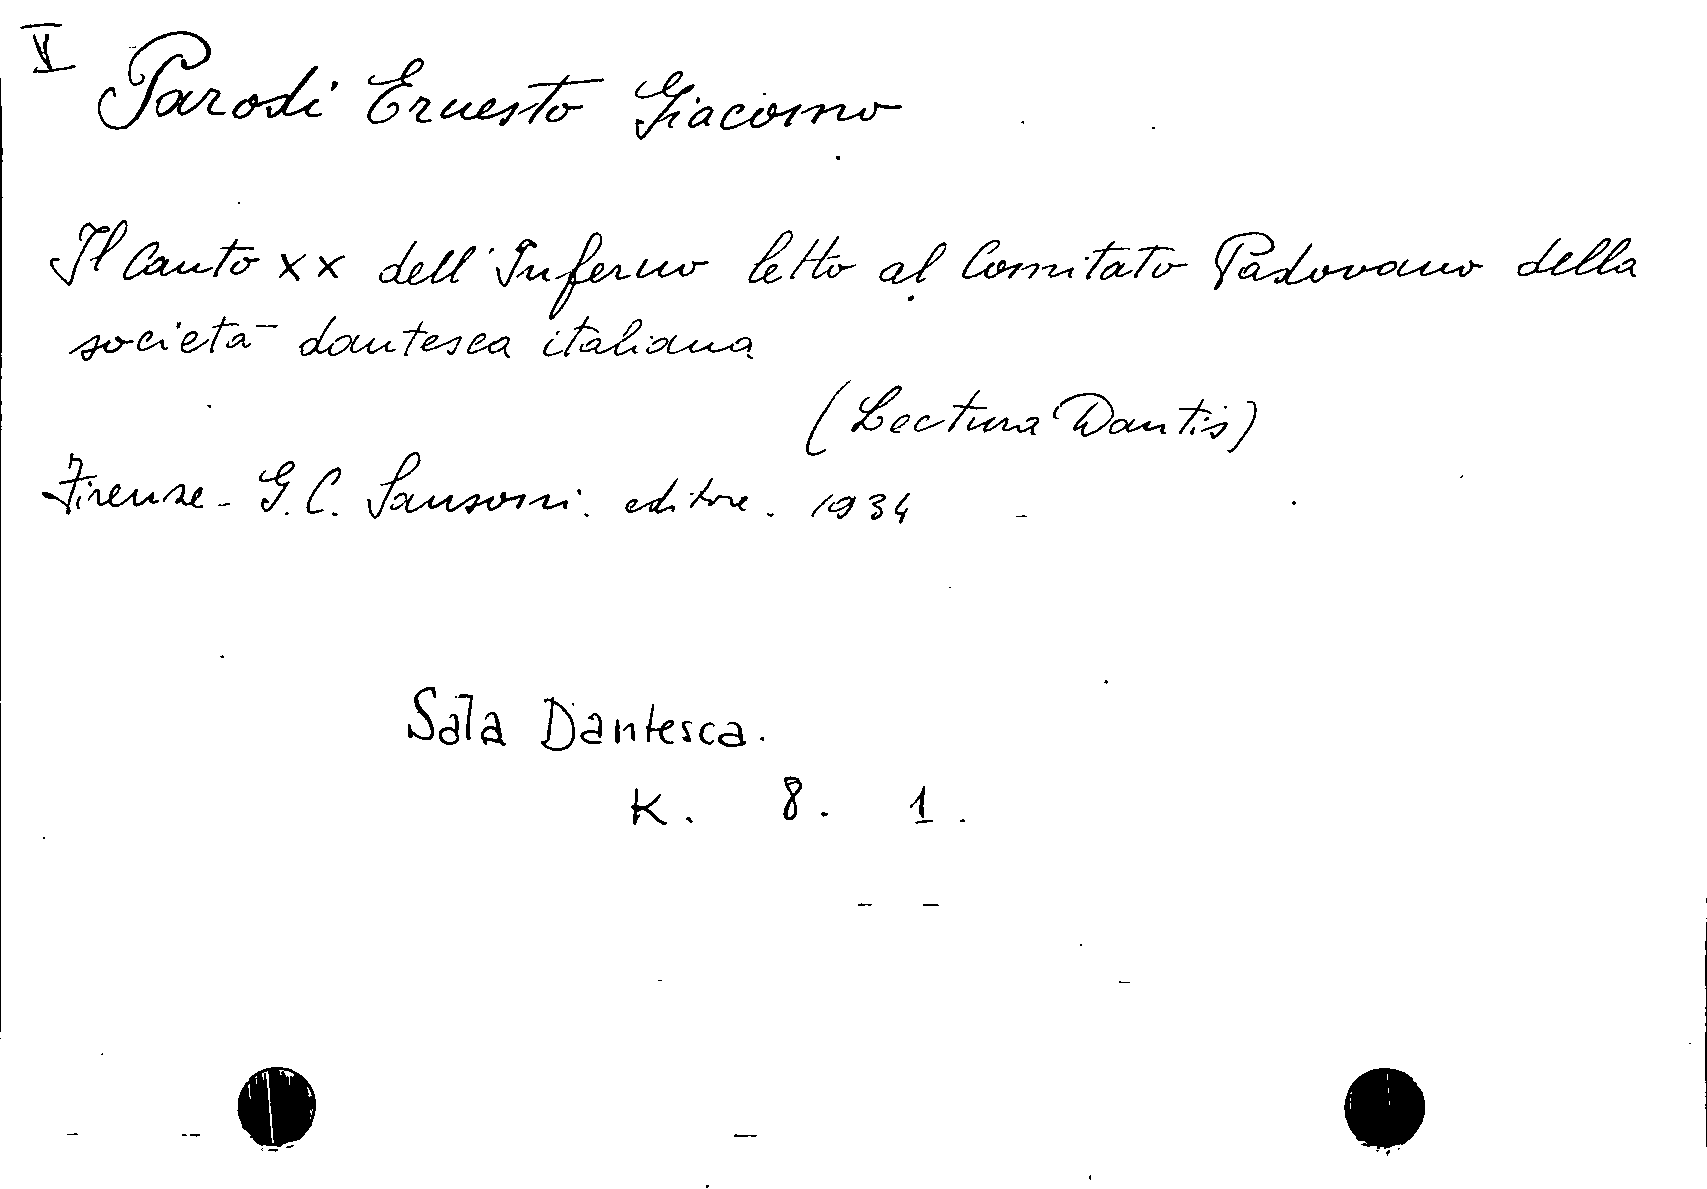 V
Parodi Ernesto Giacomo
Il Canto XX dell'Inferno letto al Comitato Padovano della
società dantesca italiana
(Lectura Dantis)
Firenze - G. C. Sansoni. editore. 1934
Sala Dantesca.
K. 8. 1.